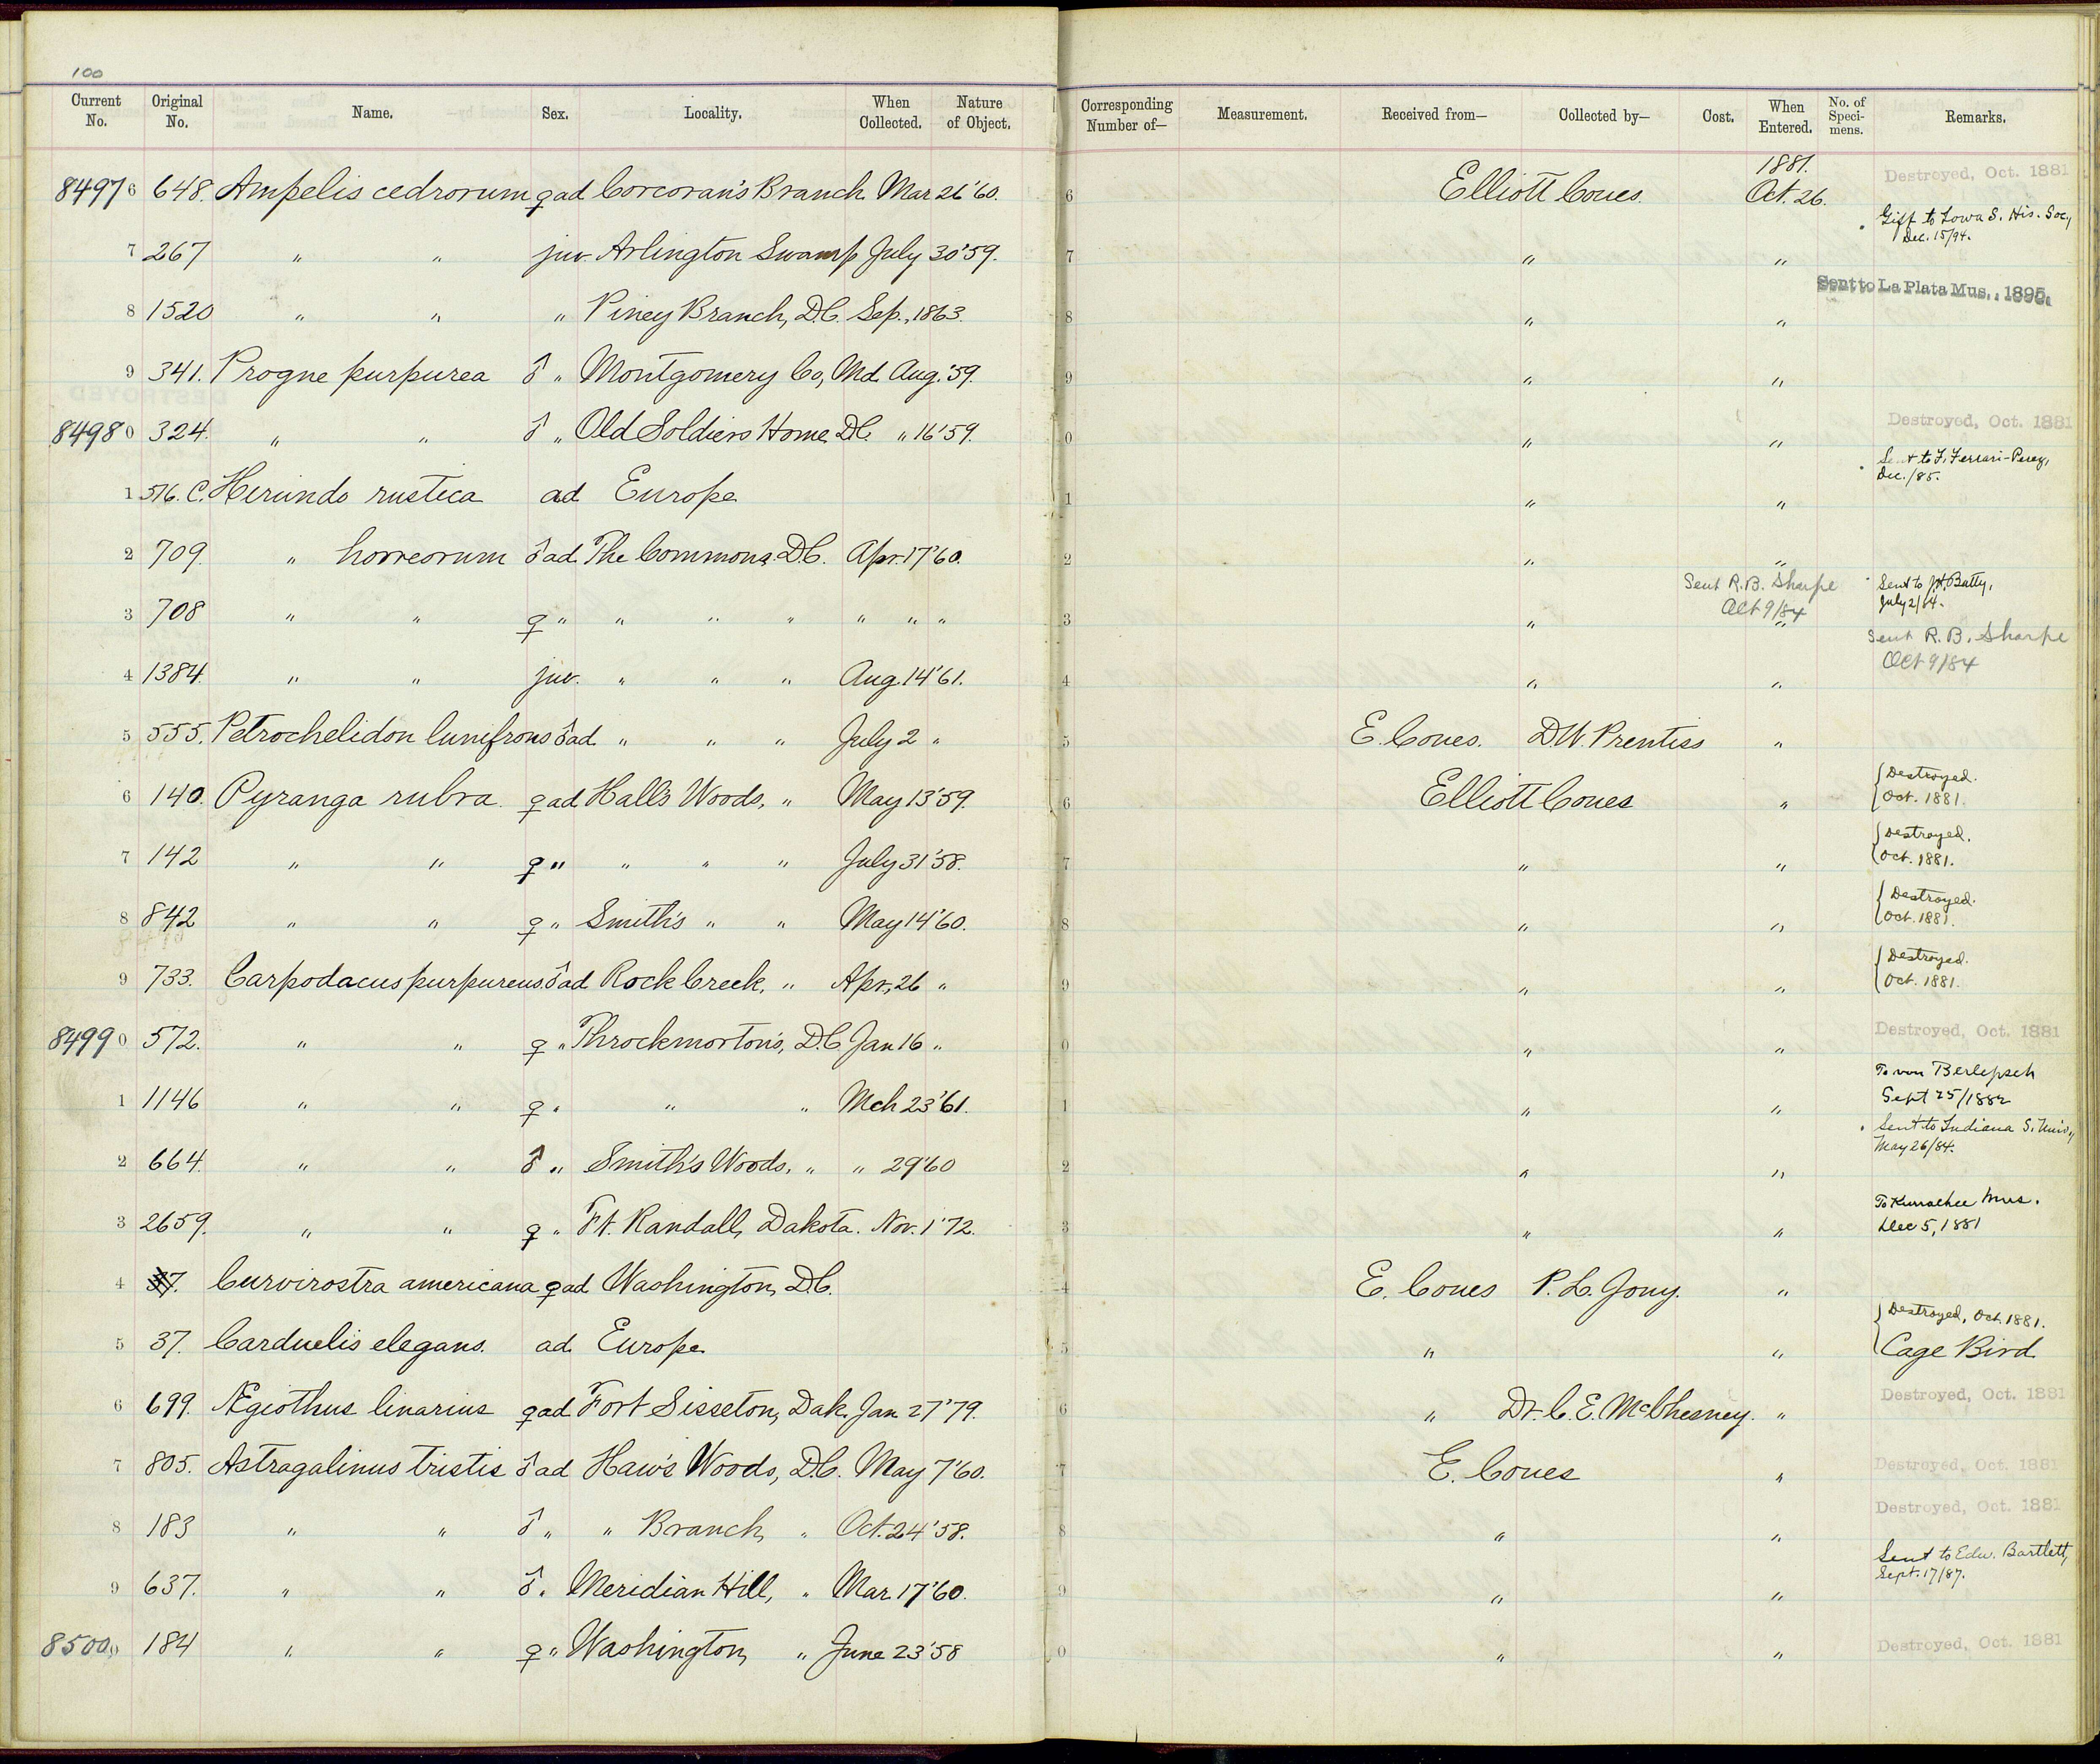 100
Current No. Original No. Name. Sex. Locality. When Collected. Nature of Object. Corresponding Number of— Measurement. Received from— Collected by— Cost. When Entered. No. of Specimens. Remarks.
84976 648. Ampelis cedrorum ♀ ad Corcoran's Branch. Mar 26 '60. 6 Elliott Coues. 1881. Oct. 26. Destroyed, Oct. 1881
7 267 " " juv. Arlington Swamp July 30 '59. 7 " " Gift to Iowa S. His. Soc., Dec. 15/94.
8 1520 " " " Piney Branch, D.C. Sep., 1863. 8 " " Sent to La Plata Mus., 1895.
9 341. Progne purpurea ♂ " Montgomery Co, Md. Aug. '59. 9 " "
84980 324. " " ♂ " Old Soldiers Home, D.C. " 16 '59. 0 " " Destroyed, Oct. 1881
1 516. C. Hirundo rustica ad Europe 1 " " Sent to F. Ferrari-Perez, Dec./85.
2 709. " horreorum ♂ ad. The Commons. D.C. Apr. 17 '60. 2 " "
3 708 " " ♀ " " " " " " " 3 " Sent R. B. Sharpe Oct 9/84 " Sent to J.H. Batty, July 2/84.
4 1384. " " juv. " " " Aug. 14 '61. 4 " " Sent R. B. Sharpe Oct 9/84
5 555. Petrochelidon lunifrons ♂ ad. " " " July 2 " 5 E. Coues. D.W. Prentiss "
6 140. Pyranga rubra. ♀ ad Hall's Woods, " May 13 '59. 6 Elliott Coues " Destroyed. Oct. 1881.
7 142 " " ♀ " " " " July 31 '58. 7 " " Destroyed. Oct. 1881.
8 842 " " ♀ " Smith's " " May 14 '60. 8 " " Destroyed. Oct. 1881.
9 733. Carpodacus purpureus. ♂ ad Rock Creek, " Apr., 26 " 9 " " Destroyed. Oct. 1881.
84990 572. " " ♀ " Throckmorton's, D.C. Jan 16 " 0 " " Destroyed, Oct. 1881
1 1146 " " ♀ " " " Mch 23 '61. 1 " " To von Berlepsch Sept 25/1882
2 664. " " ♂ " Smith's Woods, " " 29 '60 2 " " Sent to Indiana S. Univ., May 26/84.
3 2659. " " ♀ " Ft. Randall, Dakota. Nov. 1 '72. 3 " " To Kurrachee Mus. Dec 5, 1881
4 37. Curvirostra americana ♀ ad Washington, D.C. 4 E. Coues P. L. Jouy. "
5 37. Carduelis elegans. ad. Europe 5 " " Destroyed, Oct. 1881. Cage Bird.
6 699. Ægiothus linarius ♀ ad. Fort Sisseton, Dak. Jan 27 '79. 6 " Dr. C. E. McChesney. " Destroyed, Oct. 1881
7 805. Astragalinus tristis ♂ ad Haw's Woods, D.C. May 7 '60. 7 E. Coues " Destroyed, Oct. 1881
8 183 " " ♂ " " Branch, " Oct. 24 '58. 8 " " Destroyed, Oct. 1881
9 637. " " ♂ " Meridian Hill, " Mar. 17 '60. 9 " " Sent to Edw. Bartlett, Sept. 17/87.
85000 184 " " ♀ " Washington, " June 23 '58 0 " " Destroyed, Oct. 1881